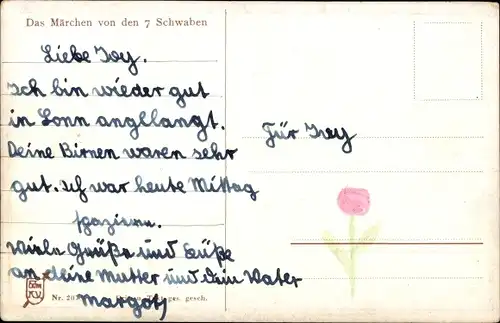 Das Märchen von den 7 Schwaben
Liebe Ivy.
Ich bin wieder gut
in Lonn angllangt.
Für Ivey
Deine Birnen waren sehr
gut. Ich war heute Mittag
spaziern.
Viele Grüße und Küße
an deine Mutter und dein Vater
Margot
Nr. 20 ges. gesch.